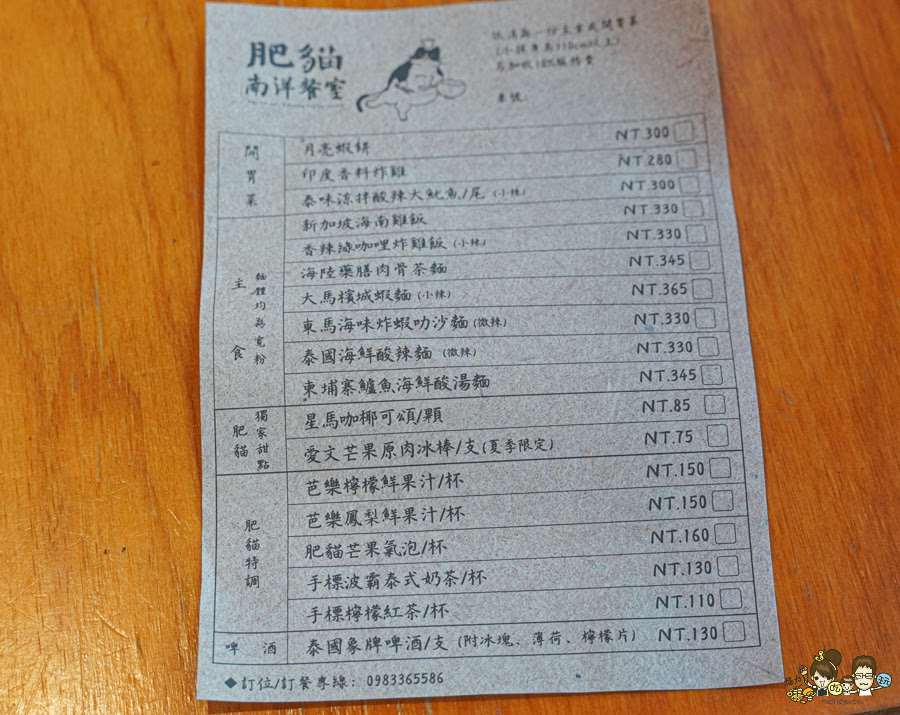 肥貓
南洋餐室
低消為一份主食或開胃菜
(小孩身高110cm以上)
另加收10%服務費
桌號:
開胃菜
月亮蝦餅 NT.300
印度香料炸雞 NT.280
泰味涼拌酸辣大魷魚/尾 (小辣) NT.300
主食
麵體均為寬粉
新加坡海南雞飯 NT.330
香辣綠咖哩炸雞飯 (小辣) NT.330
海陸藥膳肉骨茶麵 NT.345
大馬檳城蝦麵 (小辣) NT.365
東馬海味炸蝦叻沙麵 (微辣) NT.330
泰國海鮮酸辣麵 (微辣) NT.330
柬埔寨鱸魚海鮮酸湯麵 NT.345
肥貓
獨家甜點
星馬咖椰可頌/顆 NT.85
愛文芒果原肉冰棒/支(夏季限定) NT.75
肥貓特調
芭樂檸檬鮮果汁/杯 NT.150
芭樂鳳梨鮮果汁/杯 NT.150
肥貓芒果氣泡/杯 NT.160
手標波霸泰式奶茶/杯 NT.130
手標檸檬紅茶/杯 NT.110
啤酒
泰國象牌啤酒/支 (附冰塊、薄荷、檸檬片) NT.130
◆訂位/訂餐專線: 0983365586